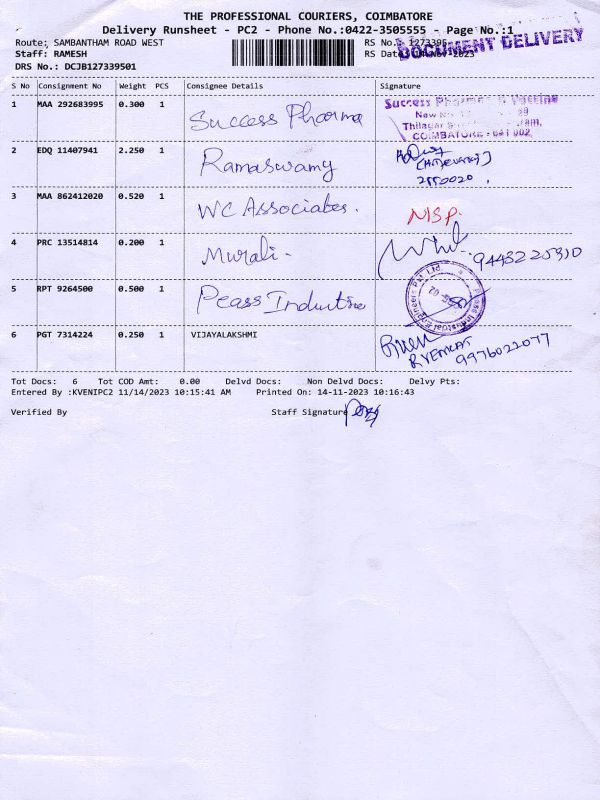 THE PROFESSIONAL COURIERS, COIMBATORE
Delivery Runsheet - PC2 - Phone No.:0422-3505555 - Page No.:1
Route: SAMBANTHAM ROAD WEST
RS No.: 1273395
DOCUMENT DELIVERY
Staff: RAMESH
RS Date 2023
DRS No.: DCJB127339501
S No Consignment No Weight PCS Consignee Details Signature
1 MAA 292683995 0.300 1 Success Pharma
Success Pharma Vaccine
New No
Thilagar
COIMBATORE - 641 002.
2 EDQ 11407941 2.250 1 Ramaswamy
2550020
3 MAA 862412020 0.520 1 WC Associates. NISP.
4 PRC 13514814 0.200 1 Murali-
5 RPT 9264500 0.500 1 Peass Industrie
Peass Industrial Engineers Pvt. Ltd.
6 PGT 7314224 0.250 1 VIJAYALAKSHMI
R VENKAT
9976022077
Tot Docs: 6 Tot COD Amt: 0.00 Delvd Docs: Non Delvd Docs: Delvy Pts:
Entered By :KVENIPC2 11/14/2023 10:15:41 AM Printed On: 14-11-2023 10:16:43
Verified By Staff Signature